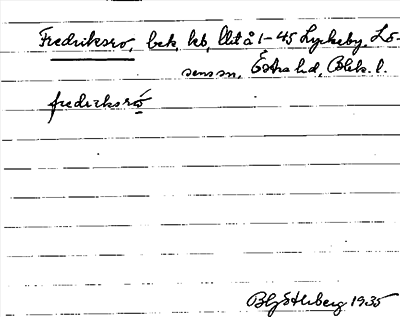 Fredriksro, bek, kb, llt å 1-45 Lyckeby, Lö-
sens sn, Östra hd, Blek. l.
fredriksró
1935